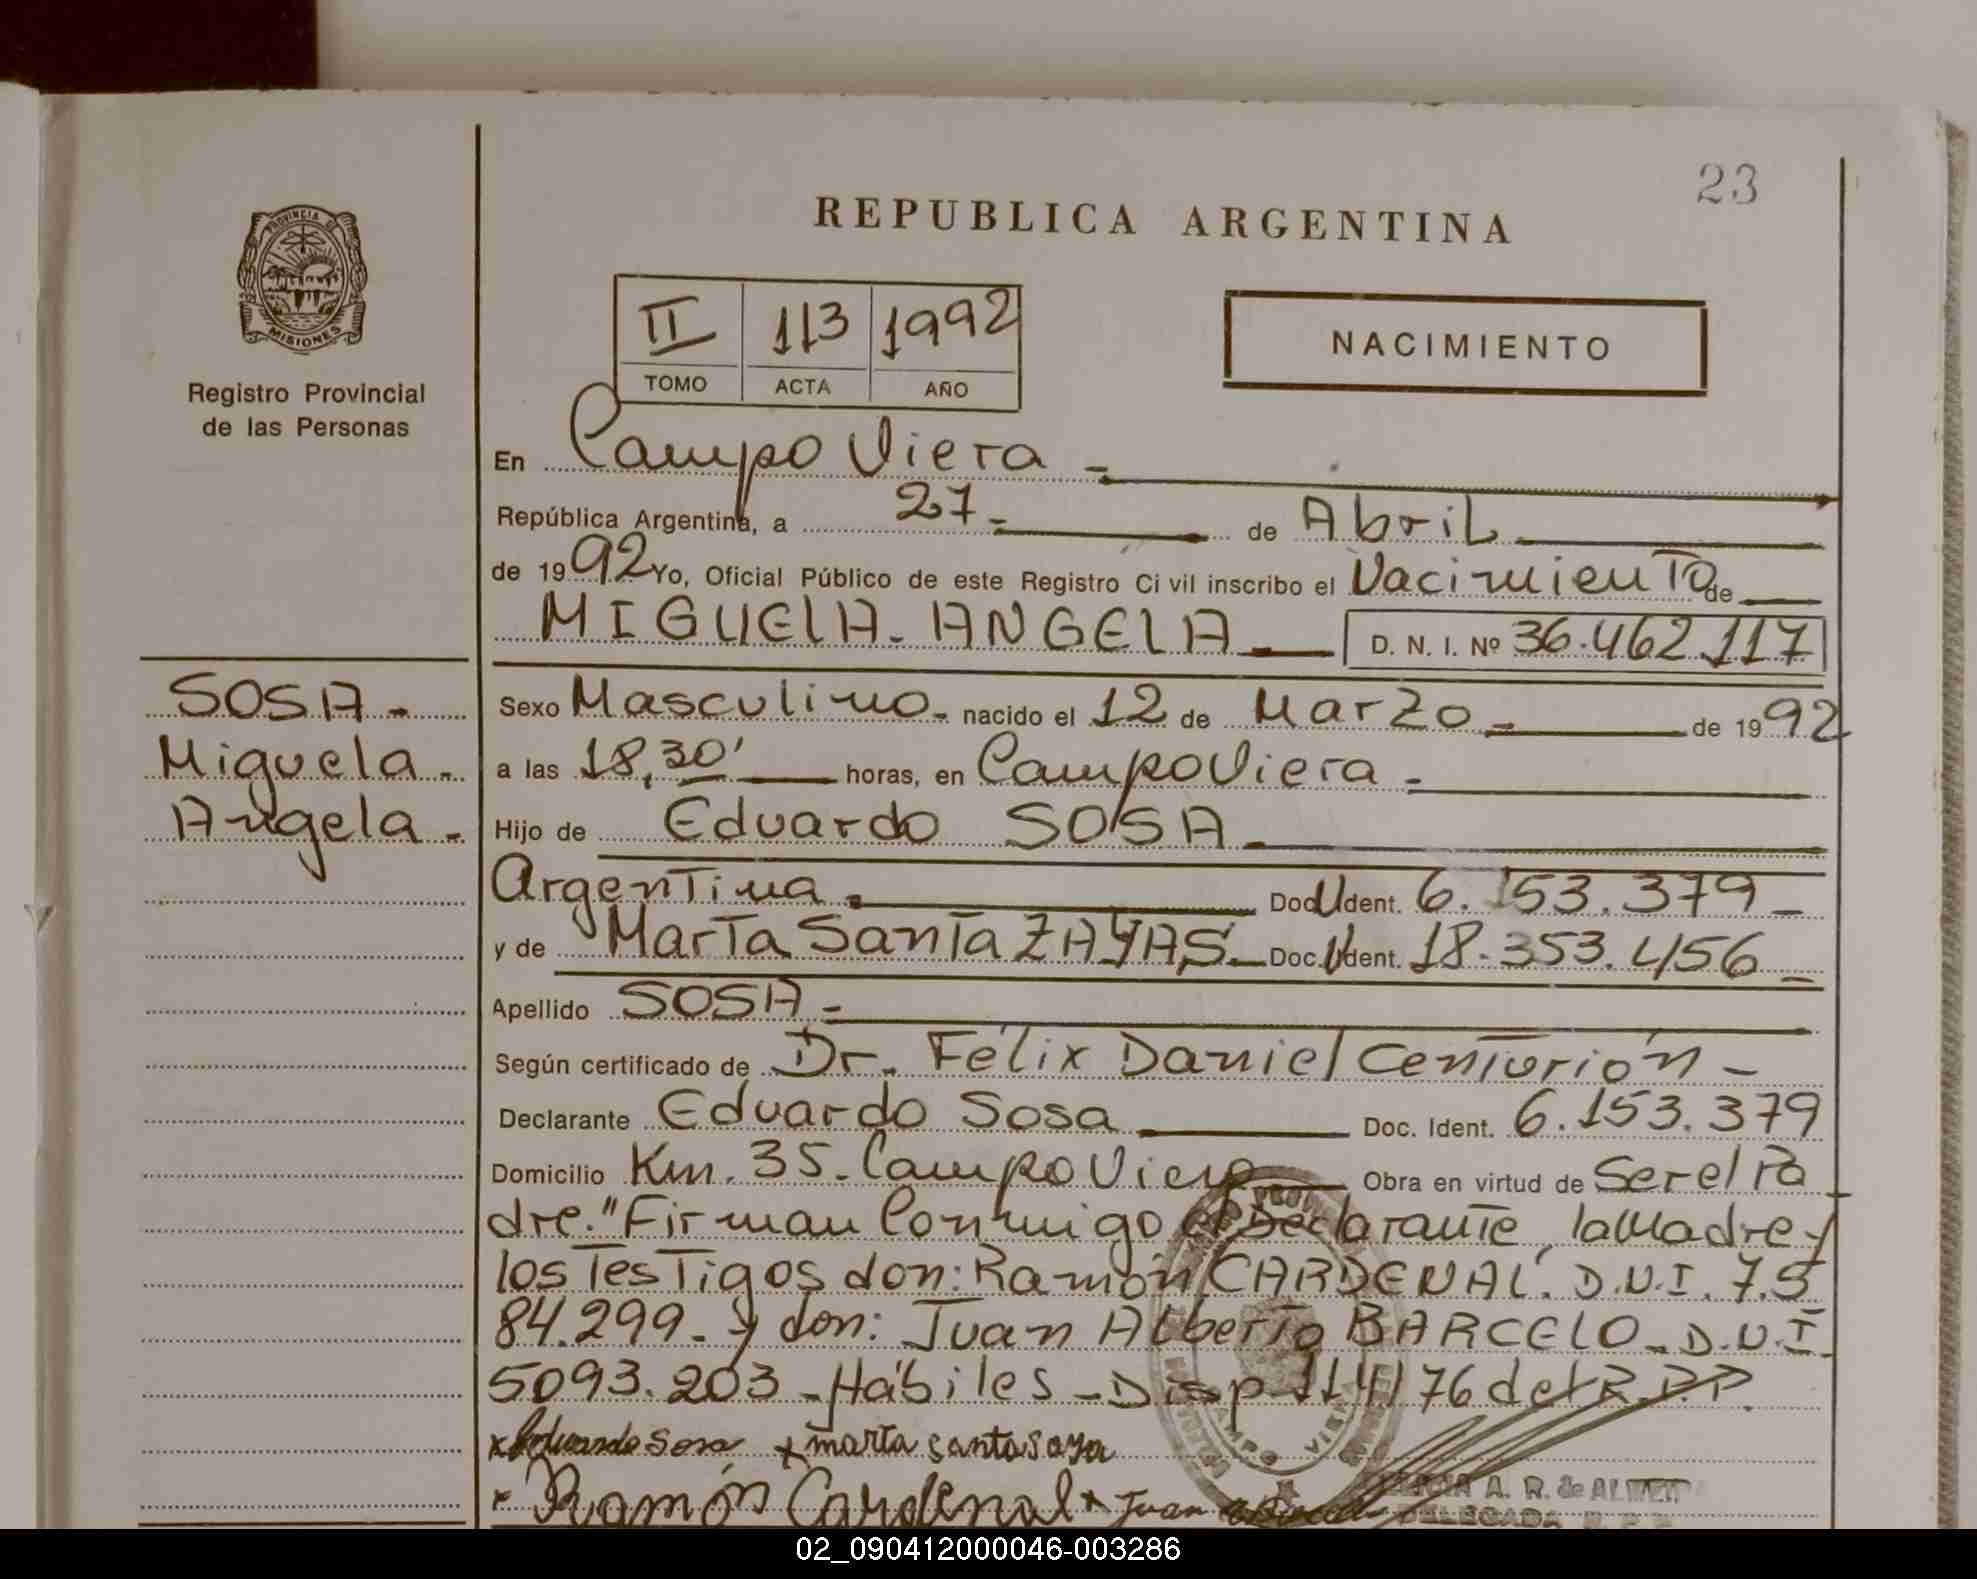 23
REPUBLICA ARGENTINA
PROVINCIA DE
MISIONES
Registro Provincial
de las Personas
II 113 1992
TOMO ACTA AÑO
NACIMIENTO
En Campo Viera -
República Argentina, a 27 - de Abril
de 1992 Yo, Oficial Público de este Registro Civil inscribo el Nacimiento de
MIGUELA - ANGELA D. N. I. Nº 36.462.117
SOSA -
Miguela -
Angela -
Sexo Masculino - nacido el 12 de Marzo - de 1992
a las 18,30' horas, en Campo Viera -
Hijo de Eduardo SOSA -
Argentina - Doc. Ident. 6.153.379 -
y de Marta Santa ZAYAS - Doc. Ident. 18.353.456 -
Apellido SOSA -
Según certificado de Dr. Félix Daniel Centurión -
Declarante Eduardo Sosa Doc. Ident. 6.153.379
Domicilio Km. 35 - Campo Viera Obra en virtud de Ser el Pa
dre." Firman Conmigo el Declarante, la Madre y
los Testigos don: Ramón CARDENAL. D.N.I. 7.5
84.299 - y don: Juan Alberto BARCELO - D.N.I.
5093.203 - Hábiles - Disp 114/76 del R.P.P.
x Eduardo Sosa x marta santa saya
x Ramón Cardenal x Juan
A. R. de ALMEI
DELEGADA
02_090412000046-003286